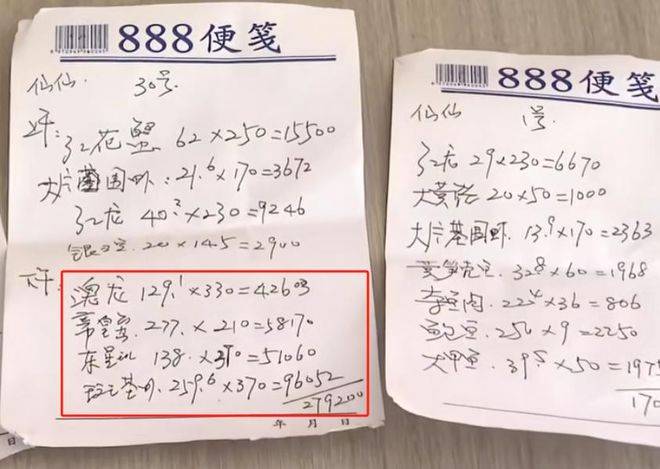 888便笺
仙仙. 30号.
上午: 红花蟹 62×250=15500
大片基围虾: 21.6×170=3672
红龙 40.2×230=9246
20×145=2900
下午: 澳龙 129.1×330=42603
277.×210=58170
东星斑 138.×370=51060
基虾. 259.6×370=96052
279200
年 月 日
888便笺
仙仙 1号.
红龙 29×230=6670
大黄 20×50=1000
大片基围虾. 13.9×170=2363
32.8×60=1968
22.4×36=806
250×9=2250
大甲鱼. 39.5×50=1975
170
日